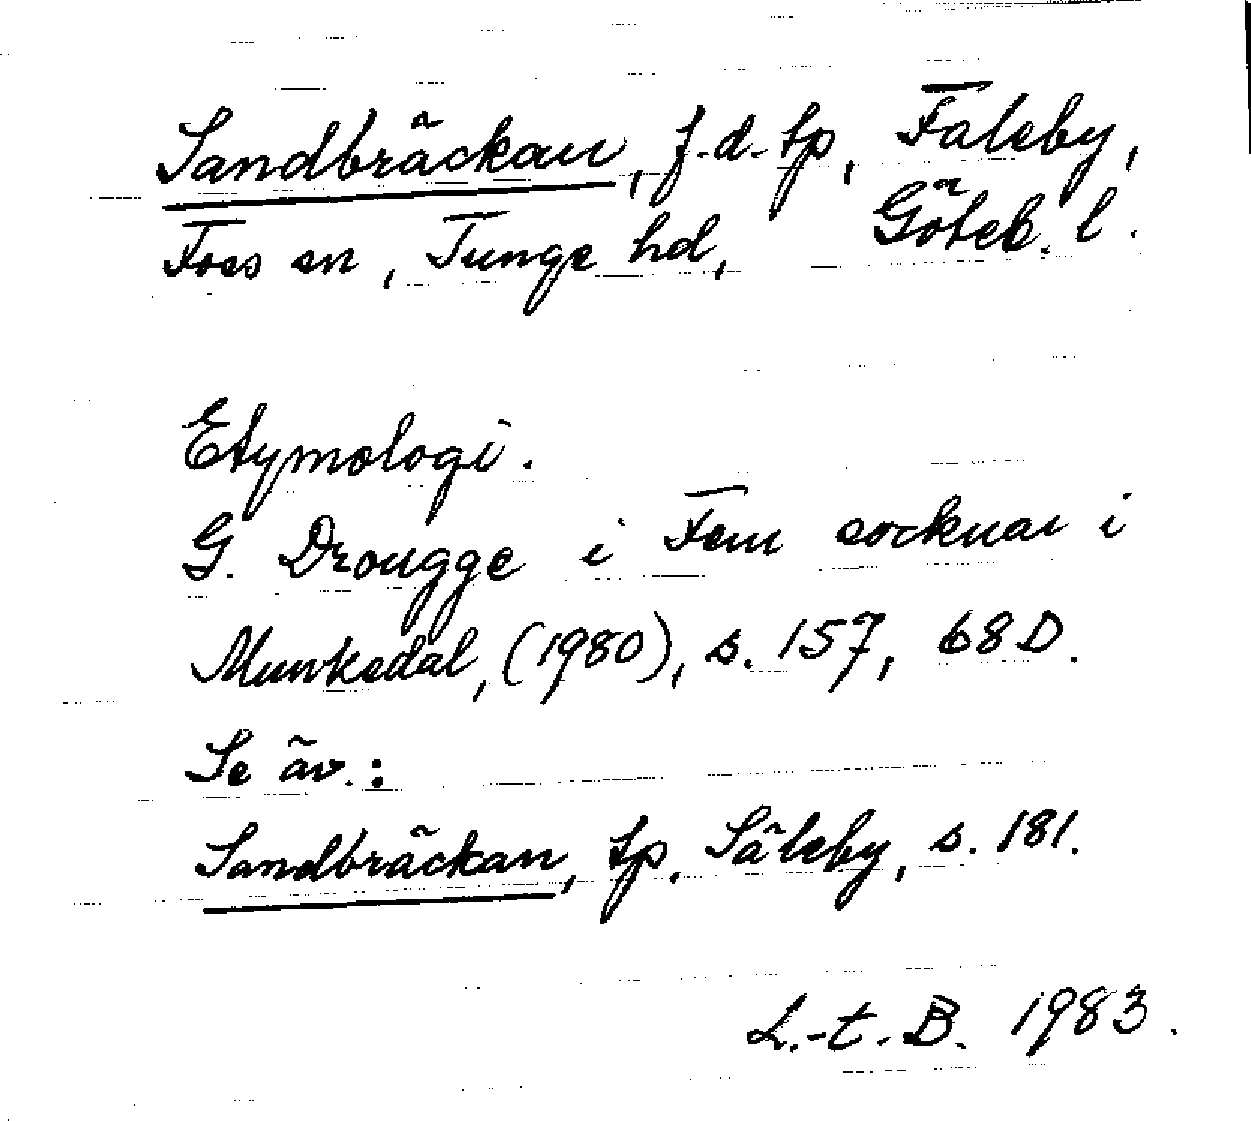 Sandbräckan, f.d. tp, Faleby,
Foss sn, Tunge hd, Göteb. l.
Etymologi.
G. Drougge i Fem socknar i
Munkedal, (1980), s. 157, 68 D.
Se äv.:
Sandbräckan, tp. Säleby, s. 181.
L.-t. B. 1983.